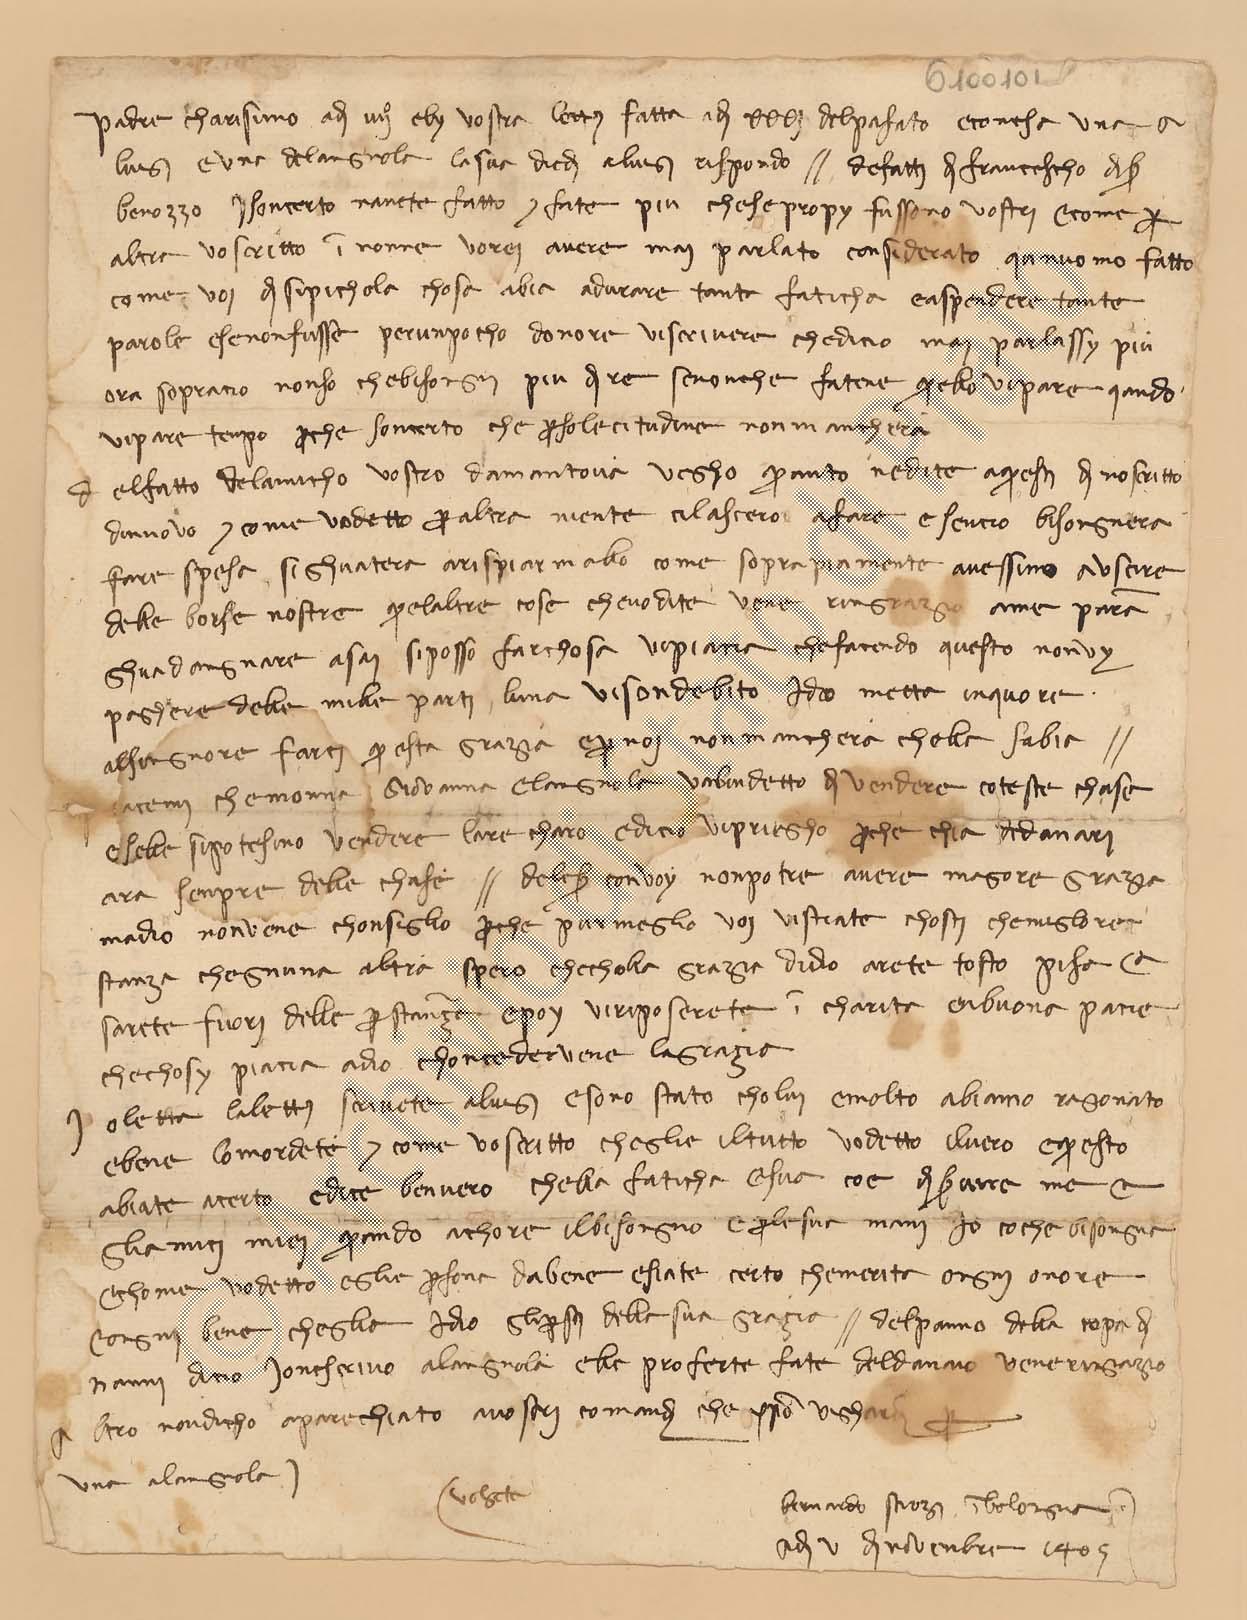 6100101
Padre charisimo adi iiii° ebi vostra lettera fatta adi XXXI delpasato econesa una a
luigi e una delangnola lasua diedi aluigi rispondo // defatti di francescho di ser
benozzo Isoncerto navete fatto e fate piu chesepropy fussono vostri ecome per
altra voscritto i nonne vorei avere mai parlato considerato qunuomo fatto
come voi disipichola chosa abia adurare tanta faticha easpendere tante
parole esenonfusse perunpocho donore viscrivere chedicio mai parlassy piu
ora sopracio nonso chebisongni piu dire senonche fatene quello vipare qando
vipare tenpo perche soncerto che persolecitudine nonmanchera
d elfatto delamicho vostro damantova vegho quanto nedite aquesti di noscritto
dinuovo e come vodetto peraltra niente cilascero afare esencio bisongnera
fare spesa sighuatera arispiarmallo come sopra piamente avessimo auscire
delle borse nostre quelaltre cose chevodite vene ringrazio ame para
ghuadangnare asai siposso farchosa vipiacia chefacendo questo nonvy
paghere delle mille parti luna visondebito Idio metta inquore
alsingnore farci questa grazia epernoi nonmanchera chella sabia //
piacemi chemonna Giovanna elangnola vabindetto di vendere coteste chase
eselle sipotesino vendere lare charo edicio vipriegho perche chia dedanari
ara senpre delle chase // deleser convoy nonpotre avere magore grazia
madio nonvene chonsiglio perche purmeglio voi vistiate chosti chemigliore
stanza chegnuna altra spero checholla grazia didio arete tosto pisa e
sarete fuori delle prestanze epoy viriposerete i charita einbuona pacie
chechosy piacia adio choncedervene lagrazia
I oletta laletera scrivete aluigi esono stato cholui emolto abiamo ragonato
ebene lomordete e come voscritto cheglie iltutto vodetto ilvero equesto
abiate acerto edice benvero chella faticha esua coe diservire me e
gliamici miei quando achore ilbisongno eperlesua mani Io coche bisongna
Echome vodetto eglie persona dabene esiate certo chemerita ongni onore
Eongni bene cheglia Idio gli presti della sua grazia // delpanno della copa di
nanni dicio Ioneschrivo alangnola elle proferte fate deldanaio veneringrazio
A ltro nondicho aparechiato avostri comandi che xpo vighardi per
una alangnola)
(volgete
bernardo strozi i bolongna
Adi V di novenbre 1405